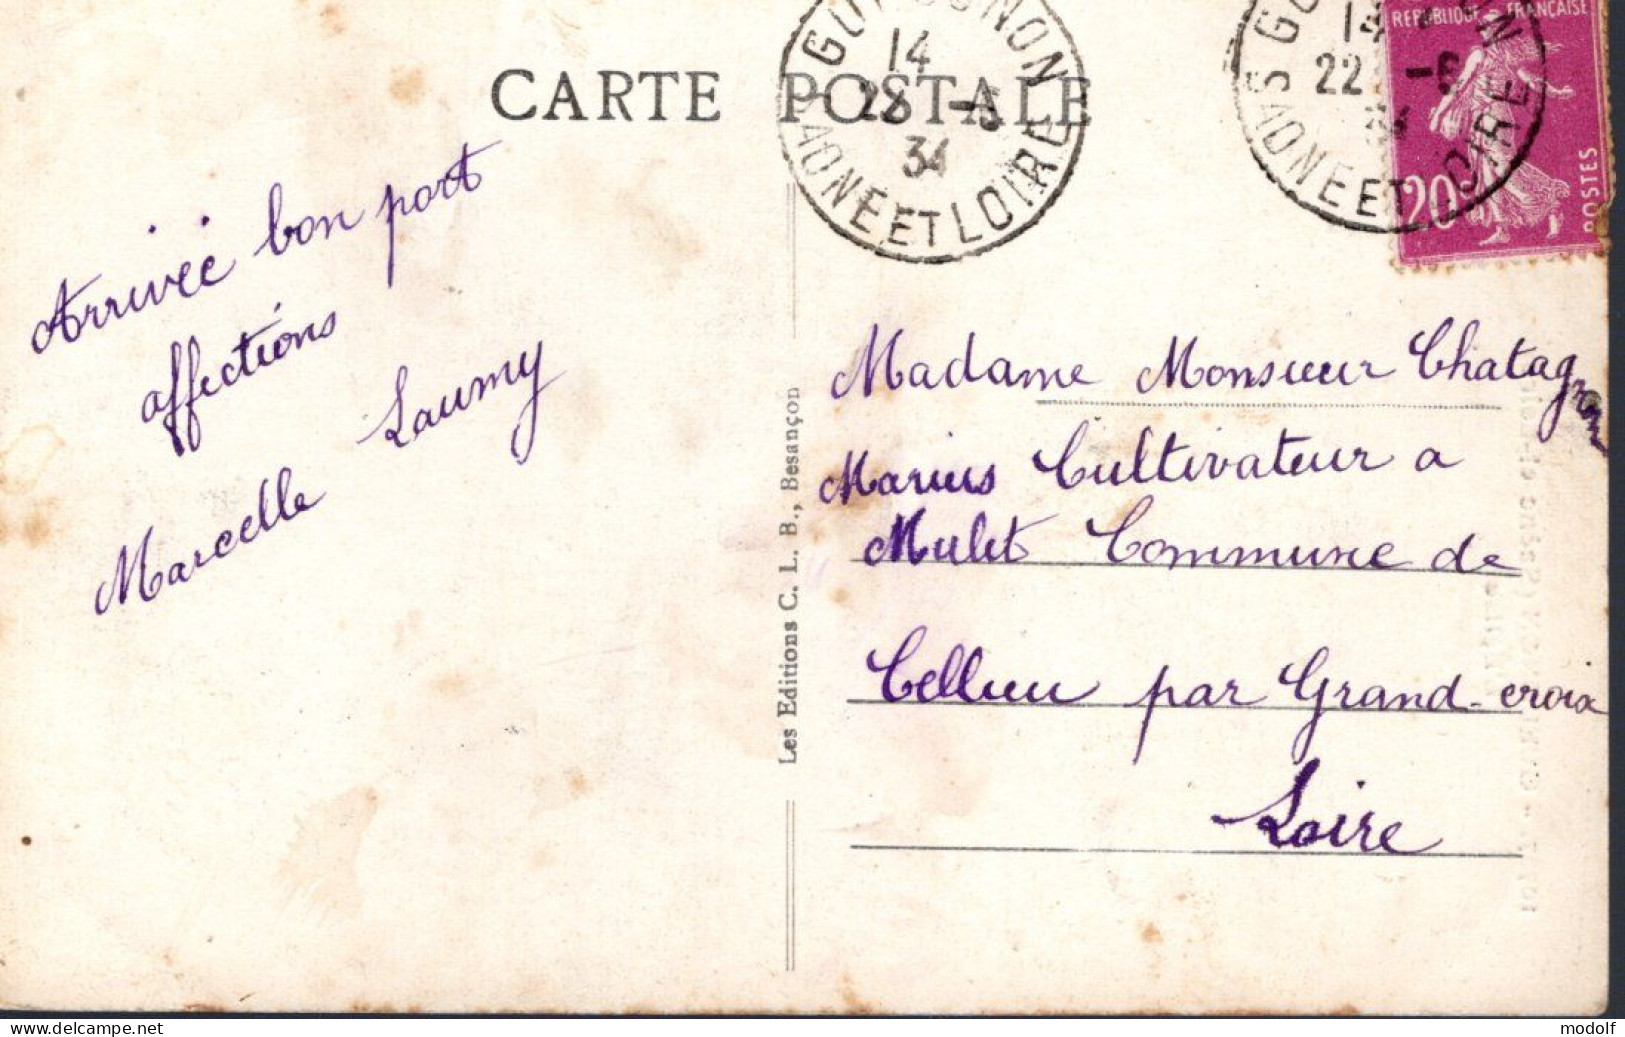 CARTE POSTALE
GUEUGNON
14
22 -6
34
SAONE ET LOIRE
14
22 -6
34
SAONE ET LOIRE
REPUBLIQUE FRANÇAISE
20c
POSTES
Arrivée bon port
affections
Marcelle Laumy
Les Editions C. L. B., Besançon
Madame Monsieur Chatagnon
Marius Cultivateur a
Mulet Commune de
Cellieu par Grand-croix
Loire
delcampe.net
modolf